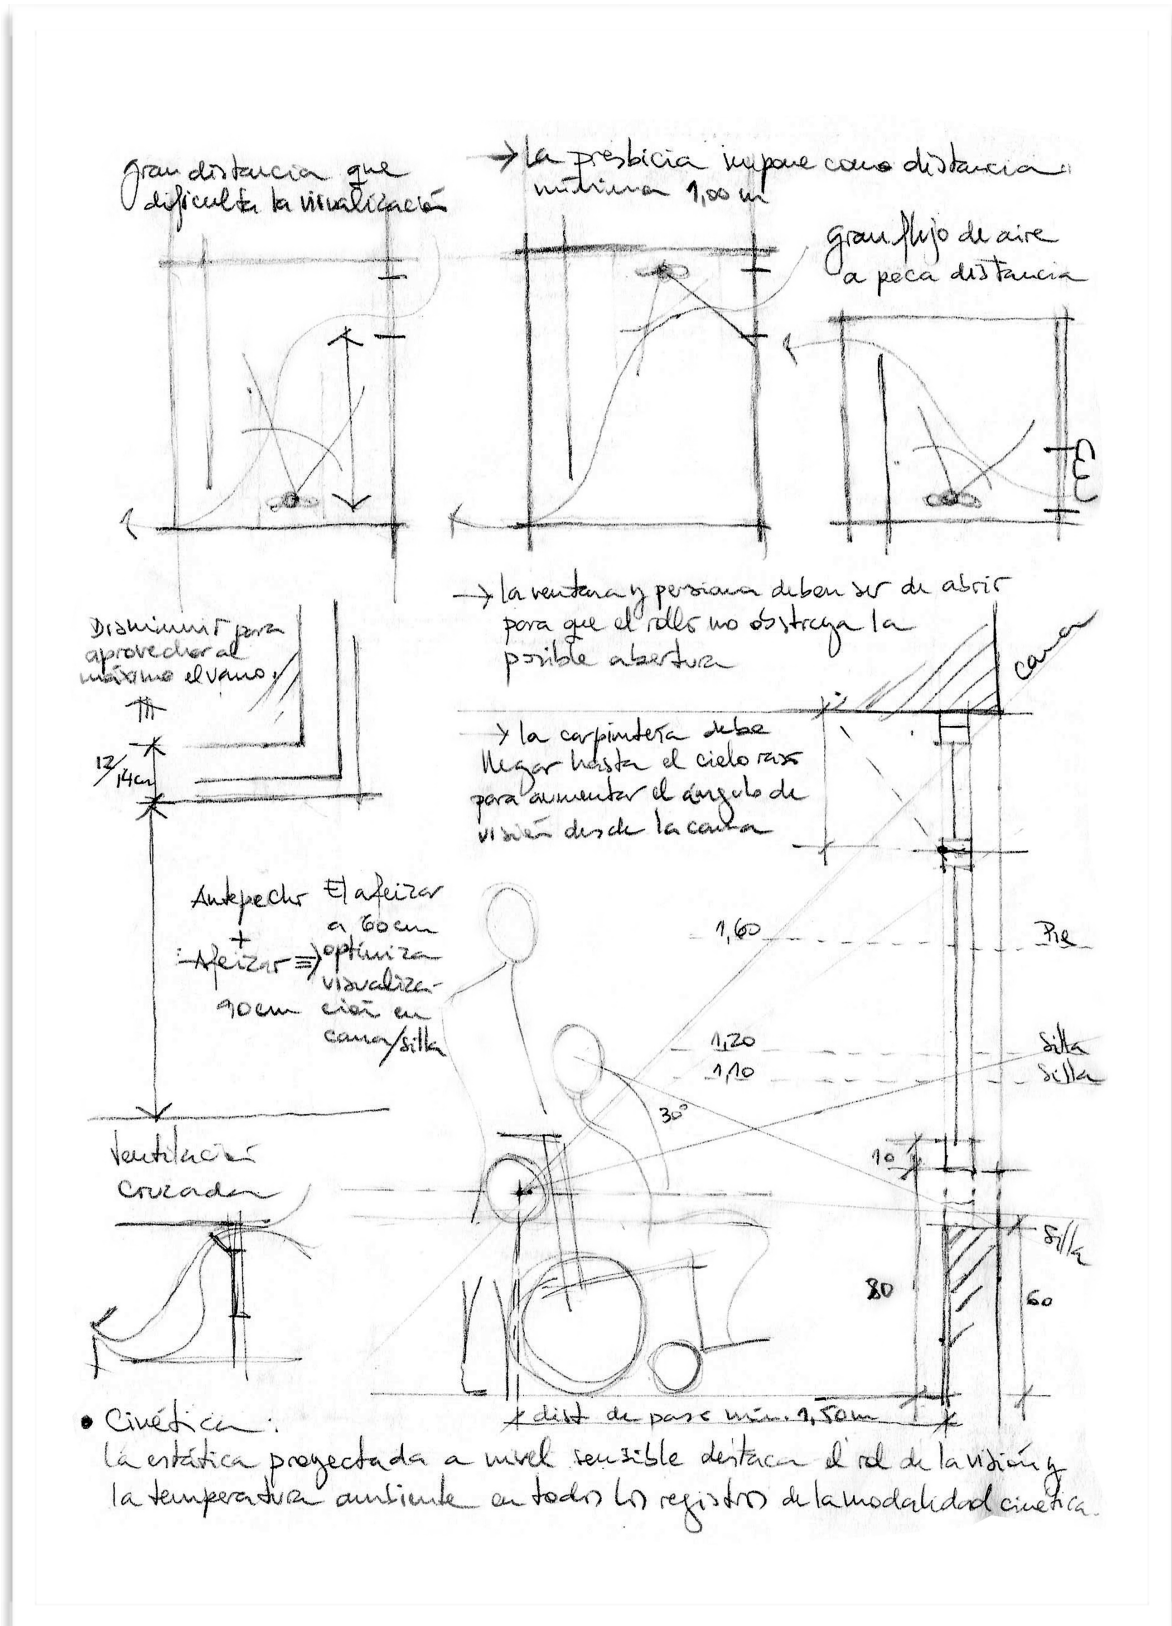 Gran distancia que
dificulta la visualización
→ la presbicia impone como distancia
mínima 1,00 m
Gran flujo de aire
a poca distancia
Disminuir para
aprovechar al
máximo el vano.
12/14cm
→ la ventana y persiana deben ser de abrir
para que el rollo no obstruya la
posible abertura
cama
→ la carpintería debe
llegar hasta el cielo raso
para aumentar el ángulo de
visión desde la cama
Antepecho
+
Afeizar ⇒
90cm
El afeizar
a 60cm
optimiza
visualiza-
ción en
cama/silla
1,60 Pie
1,20 Silla
1,10 Silla
30°
10
Silla
80
60
Ventilación
Cruzada
dist de paso mín. 1,50m
• Cinética:
La estática proyectada a nivel sensible destaca el rol de la visión y
la temperatura ambiente en todos los registros de la modalidad cinética.